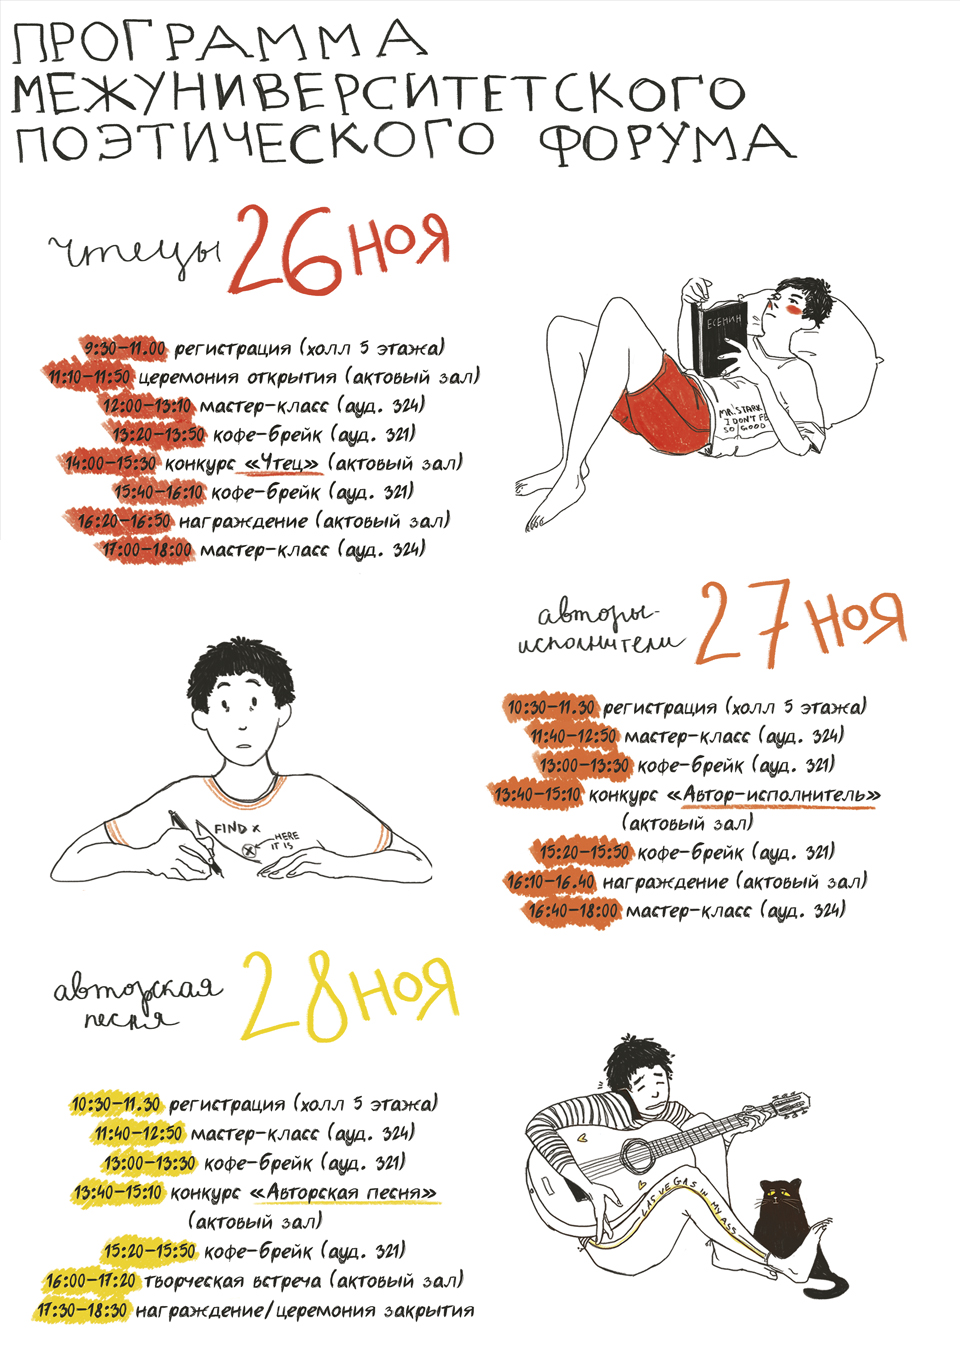 ПРОГРАММА
МЕЖУНИВЕРСИТЕТСКОГО
ПОЭТИЧЕСКОГО ФОРУМА
чтецы 26 НОЯ
9:30-11.00 регистрация (холл 5 этажа)
11:10-11:50 церемония открытия (актовый зал)
12:00-13:10 мастер-класс (ауд. 324)
13:20-13:50 кофе-брейк (ауд. 321)
14:00-15:30 конкурс «Чтец» (актовый зал)
15:40-16:10 кофе-брейк (ауд. 321)
16:20-16:50 награждение (актовый зал)
17:00-18:00 мастер-класс (ауд. 324)
ЕСЕНИН
MR. STARK
I DON'T FE
SO GOOD
авторы-
исполнители 27 НОЯ
10:30-11.30 регистрация (холл 5 этажа)
11:40-12:50 мастер-класс (ауд. 324)
13:00-13:30 кофе-брейк (ауд. 321)
13:40-15:10 конкурс «Автор-исполнитель»
(актовый зал)
15:20-15:50 кофе-брейк (ауд. 321)
16:10-16.40 награждение (актовый зал)
16:40-18:00 мастер-класс (ауд. 324)
FIND X
HERE
IT IS
X
авторская
песня 28 НОЯ
10:30-11.30 регистрация (холл 5 этажа)
11:40-12:50 мастер-класс (ауд. 324)
13:00-13:30 кофе-брейк (ауд. 321)
13:40-15:10 конкурс «Авторская песня»
(актовый зал)
15:20-15:50 кофе-брейк (ауд. 321)
16:00-17:20 творческая встреча (актовый зал)
17:30-18:30 награждение/церемония закрытия
LAS VEGAS IN MY ASS